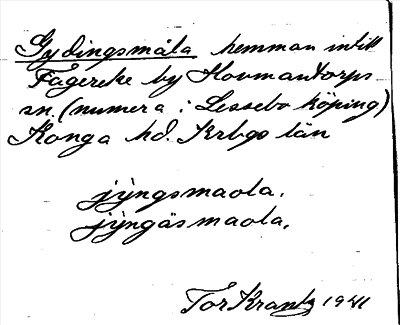 Gydingsmåla hemman intill
Fagereke by Hovmantorps
sn. (numera i Lessebo köping)
Konga hd. Krbgs län
jỳngsmaola.
jỳngäsmaola.
Tor Krantz 1941